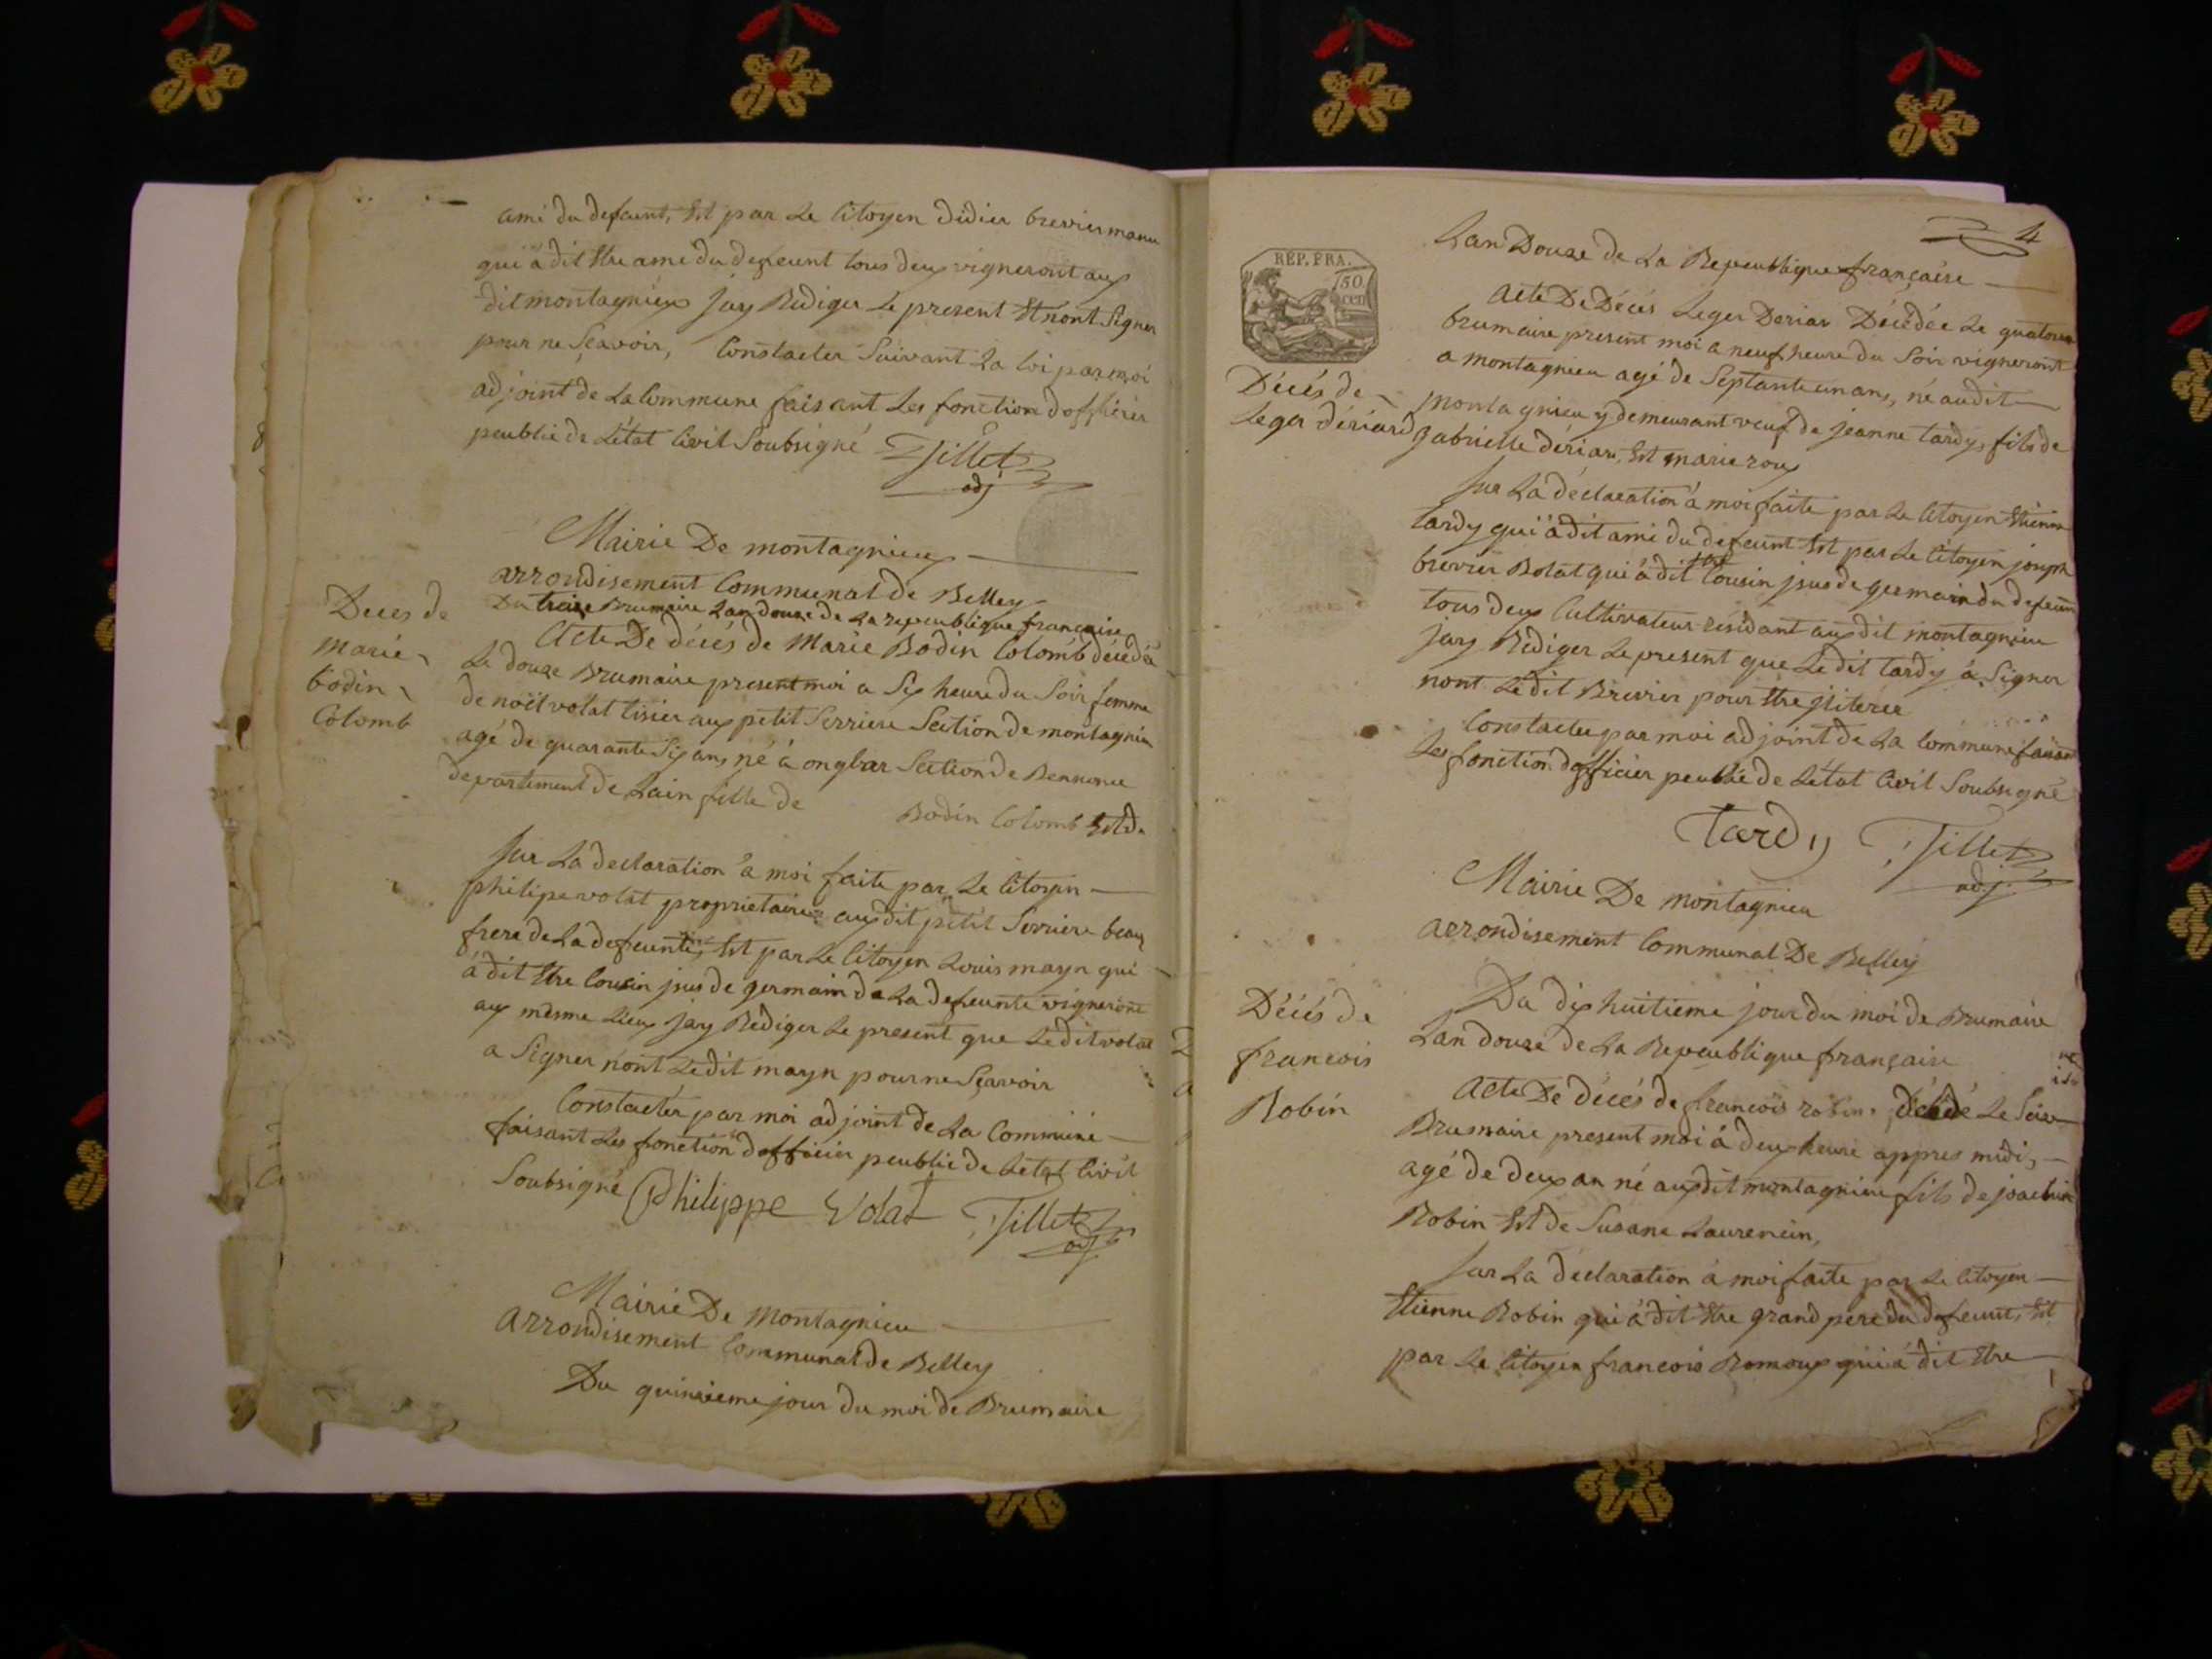 ami du defeunt, Est par Le Citoyen didier brevier manu
qui á dit Etre ami du defeunt tous deux vigneront aux
dit montagnieu jay Rediger Le present Et nont Signer
pour ne Sçavoir, Constater Suivant La loi par moi
adjoint de La Commune faisant Les fonction dofficier
peublic de L'état Civil Soubsigné Tillet
adj
Mairie De montagnieu
arrondisement Communal de Belley
Du treize Brumaire Lan douze de La republique françaire
Deces de
Marie
bodin
Colomb
Acte De décés de Marie Bodin Colomb décédée
Le douze Brumaire present moi a Six heure du Soir femme
de noël volat tisier aux petit Serriere Section de montagnieu
agé de quarante Six ans né á ongbar Section de Bennonce
departement de Lain fille de Bodin Colomb Est de
Sur La declaration á moi faite par Le Citoyen
philipe volat proprietaire aux dit petit Serriere beaux
frere de La defeunte, Est par Le Citoyen Louis mayn qui
á dit Etre Cousin jsus de germain de La defeunte vignerone
aux même Lieux jay Rediger Le present que Le dit volat
a Signer nont Le dit mayn pour ne Sçavoir
Constatér par moi adjoint de La Commune
faisant Les fonction dofficier peublic de Létat Civil
Soubsigné Philippe Volat Tillet
adj
Mairie De Montagnieu
arrondisement Communal de Belley
Du quinzieme jour du moi de Brumaire
4
Lan Douze de La Repeublique françaire
REP. FRA.
50
cen
Décés de
Leger dériard
Acte De Décés Leger Deriar Décédée Le quatorze
brumaire present moi a neuf heure du Soir vigneront
a montagnieu agé de Septante un ans, né au dit
montagnieu y demeurant veuf de jeanne tardy, fils de
gabrielle dériar, Est marie roux
Sur La déclaration á moi faite par Le Citoyen Etienne
tardy qui á dit ami du defeunt Est par Le Citoyen joseph
brevier Bolat qui á dit Etre Cousin jsus de germain du defeunt
tous deux Cultivateur résidant aux dit montagnieu
jay Rédiger Le present que Le dit tardy á Signer
nont Le dit Brevier pour Etre jliterée
Constater par moi adjoint de La Commune faisant
Les fonction dofficier peublic de Létat Civil Soubsigné
Tardy Tillet
adj.
Mairie De montagnieu
arrondisement Communal De Belley
Décés de
francois
Robin
Du dix huitieme jour du moi de Brumaire
Lan douze de La Repeublique françaire
Acte De décés de francois robin, décédé Le
Brumaire present moi á deux heure appres midi,
agé de deux an né aux dit montagnieu fils de joachim
Robin Est de Susane Laurencin,
Sur La déclaration á moi faite par Le Citoyen
Etienne Robin qui á dit Etre grand pere du defeunt, Est
par Le Citoyen francois Romoux qui á dit Etre